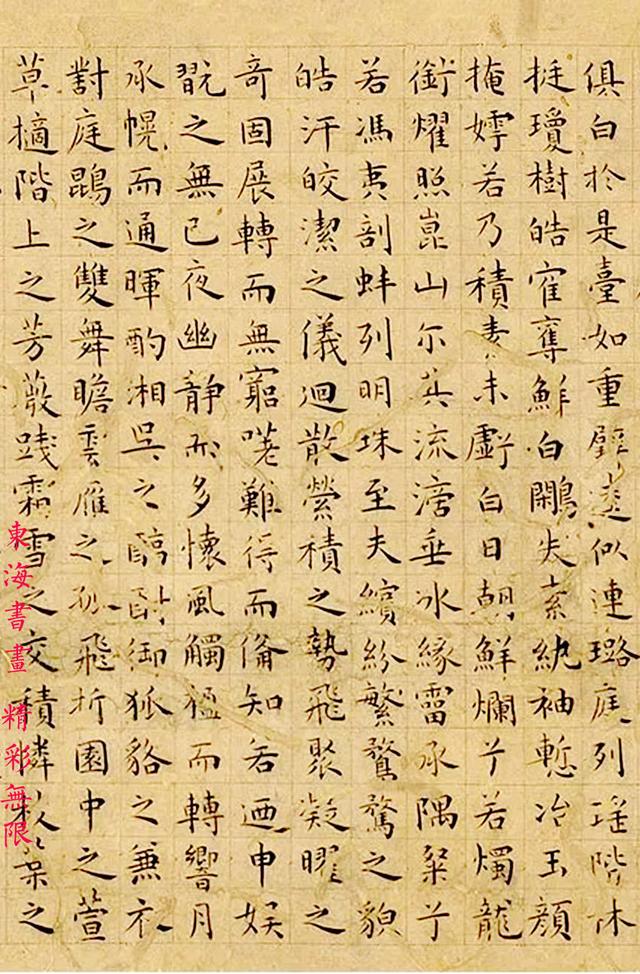 俱白於是臺如重璧逵似連璐庭列瑤階林
挺瓊樹皓隺奪鮮白鷴失素紈袖慙冶玉顏
掩嫮若乃積素未虧白日朝鮮爛兮若燭龍
銜燿照崑山尒其流滴垂冰緣霤承隅粲兮
若馮夷剖蚌列明珠至夫繽紛繁騖驚之貌
皓汗皎潔之儀迴散縈積之勢飛聚凝曜之
奇固展轉而無窮嗟難得而備知若迺申娱
翫之無已夜幽静而多懷風觸楹而轉響月
承幌而通暉酌湘吳之醇酎御狐貉之兼衣
對庭鵾之雙舞瞻雲雁之孤飛折園中之萱
草摘階上之芳薇踐霜雪之交積憐枝葉之
東海書畫 精彩無限